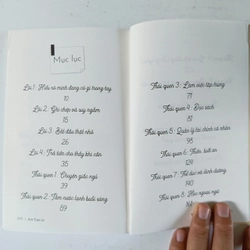 Mục lục
Lối 1: Hiểu rõ mình đang có gì trong tay
10
Lối 2: Ghi chép và suy ngẫm
18
Lối 3: Bắt đầu thật nhỏ
26
Lối 4: Trả tiền cho thầy khi cần
35
Thói quen 1: Chuyên giấc ngủ
39
Thói quen 2: Tắm nước lạnh buổi sáng
59
Thói quen 3: Làm việc tập trung
71
Thói quen 4: Đọc sách
81
Thói quen 5: Quản lý tài chính cá nhân
98
Thói quen 6: Thiền, biết ơn
124
Thói quen 7: Thể dục và dinh dưỡng
140
Thói quen 8: Học ngoại ngữ